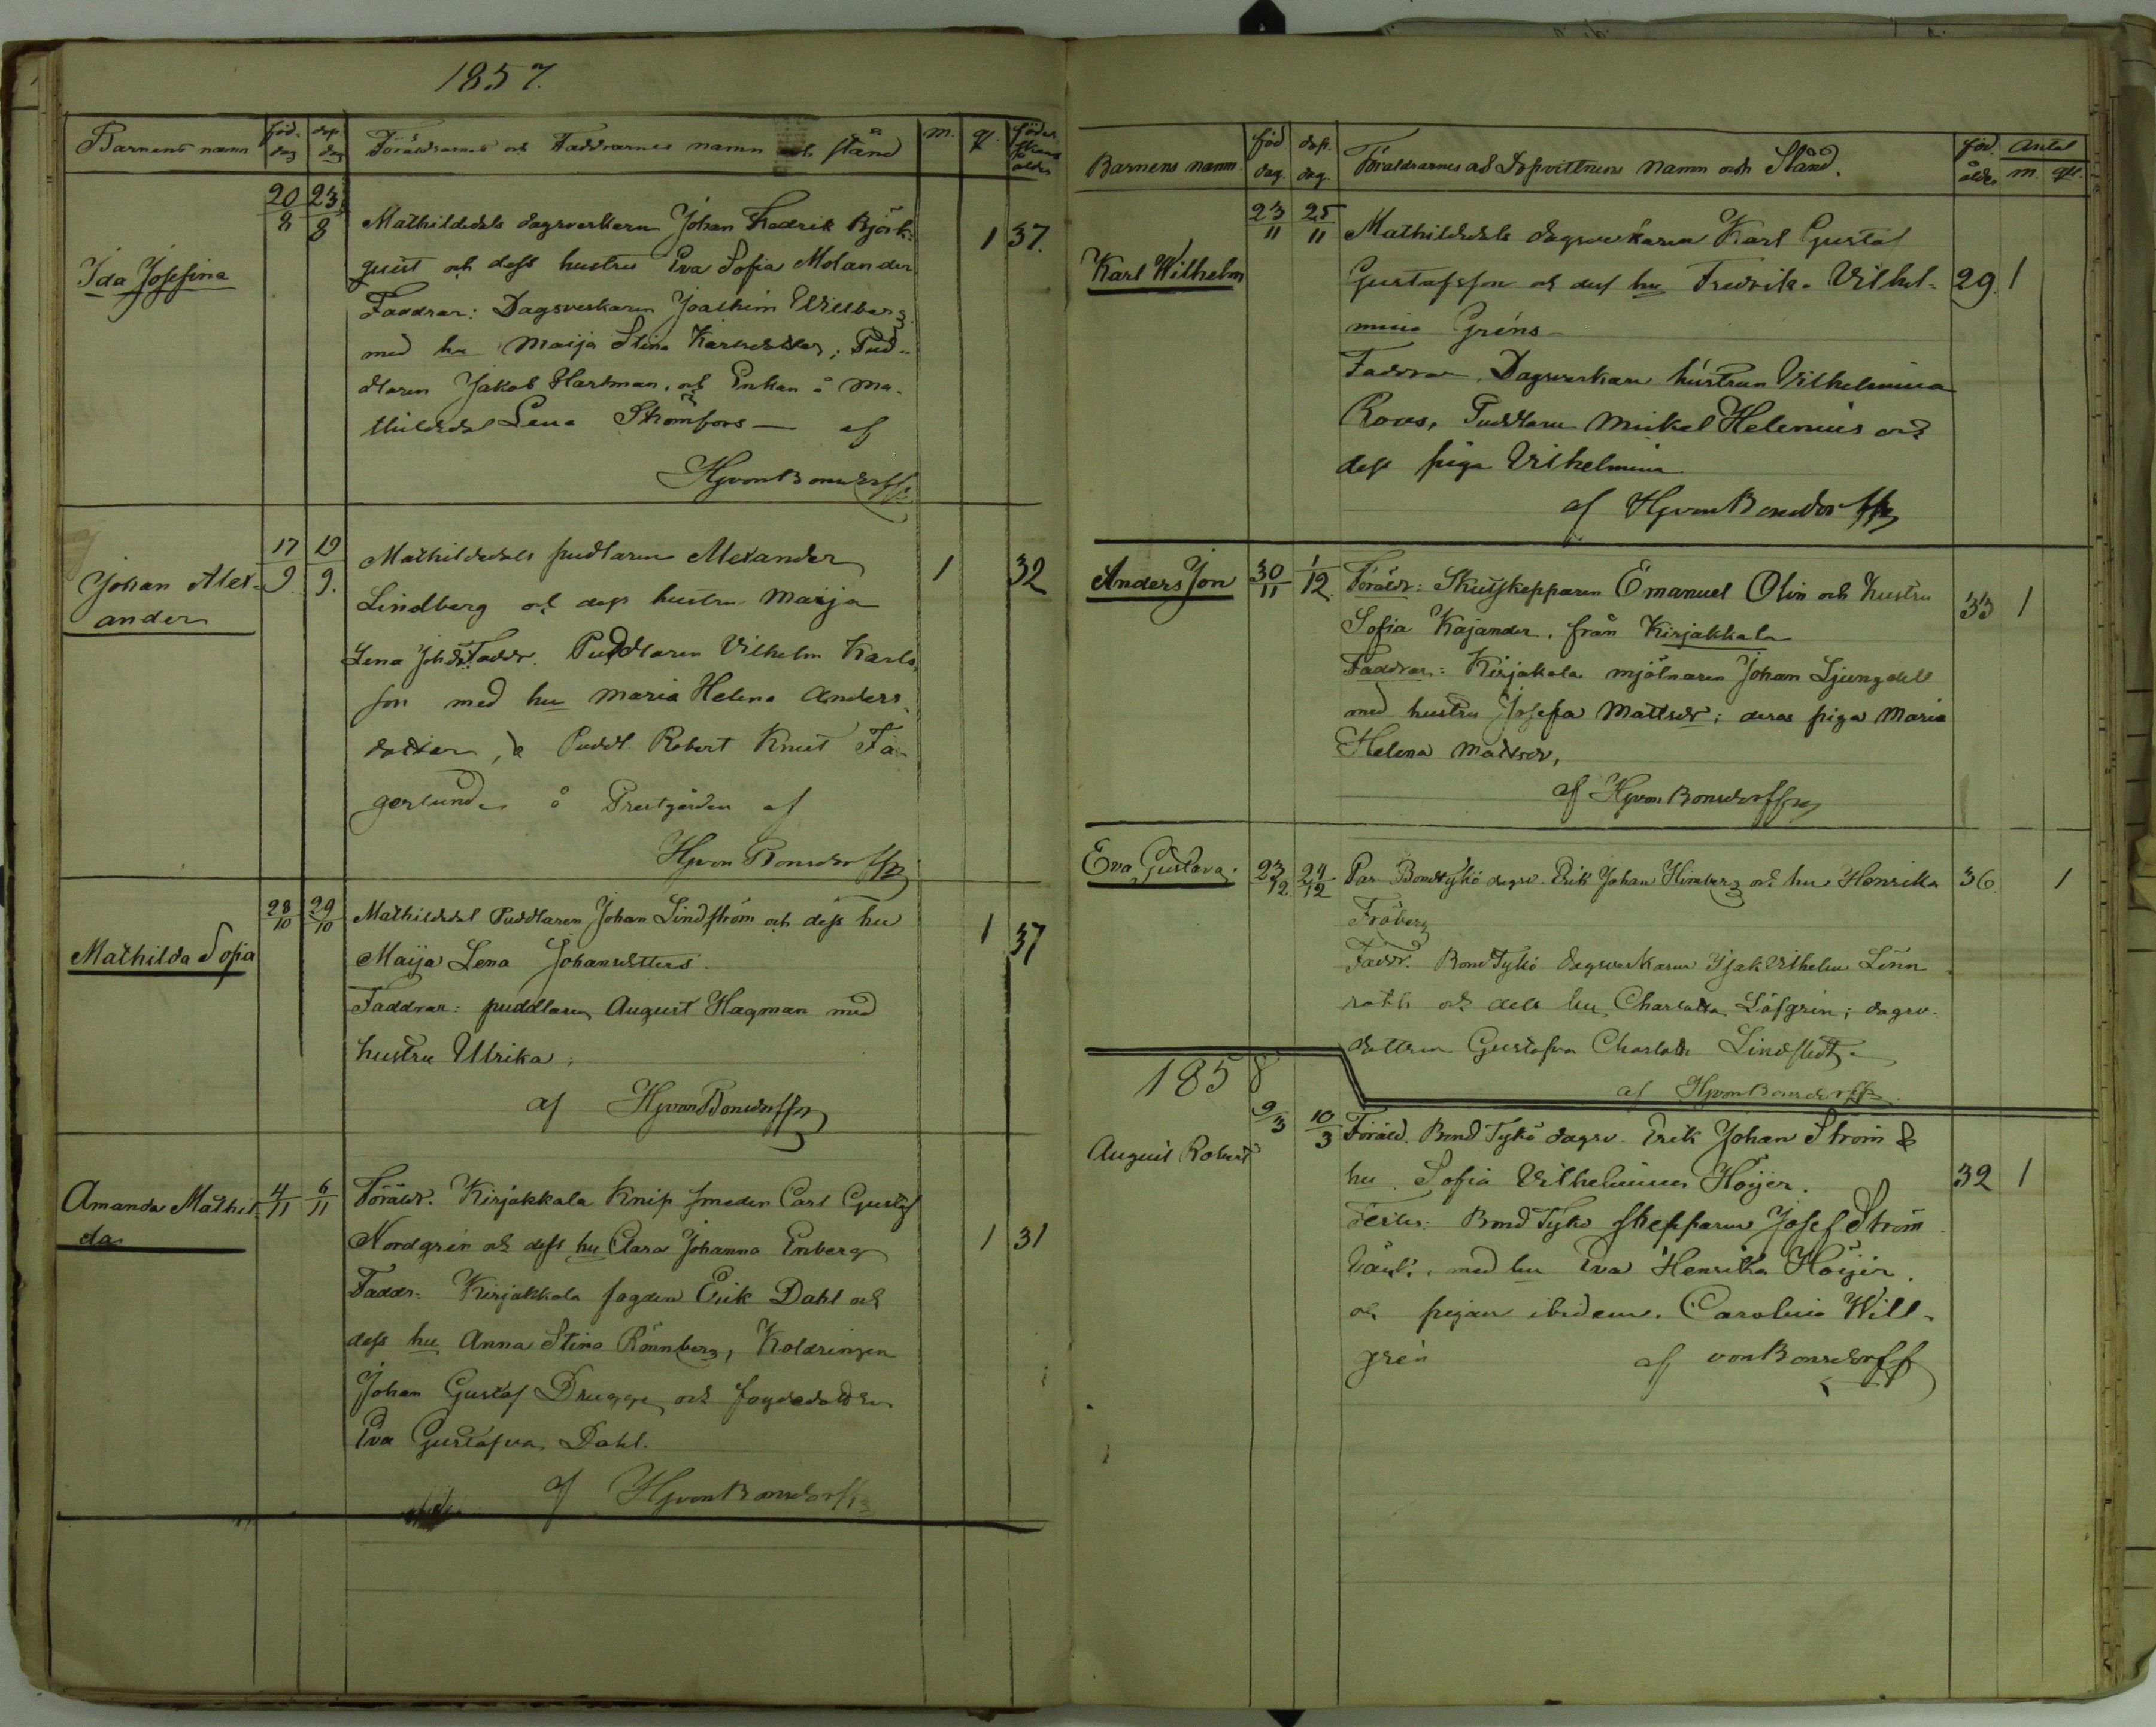 1857.
Barnens namn föd. dag dop. dag Föräldrarnes och Faddrarnes namn och stånd m. q. föder skans ålder
20/8 23/8
Ida Josefina
Mathildedals dagsverkaren Johan Fredrik Björk-
quist och dess hustru Eva Sofia Molander 1 37.
Faddrar: Dagsverkaren Joachim Willberg
med hu Maija Stina Karlsdotter; Pud-
dlaren Jakob Hartman, och Enkan å Ma-
thildedal Lena Strömfors — af
HjvonBonsdorff
Johan Alex-
ander
17/9 19/9.
Mathildedals pudlaren Alexander 1 32
Lindberg och dess hustru Maija
Lena Johdr. Faddr. Puddlaren Vilhelm Karls-
son med hu Maria Helena Anders-
dotter, & Puddl. Robert Knut Fa-
gerlund å Prestgården af
Hjvon Bonsdorff
Mathilda Sofia
28/10 29/10
Mathildedal Puddlaren Johan Lindström och dess hu 1 37
Maija Lena Johansdotters.
Faddrar: puddlaren August Hagman med
hustru Ulrika;
af HjvonBonsdorff
Amanda Mathil-
da
4/11 6/11
Föräldr. Kirjakkala Knip smeden Carl Gustaf
Nordgrén och dess hu Clara Johanna Enberg 1 31
Faddr: Kirjakkala fogden Erik Dahl och
dess hu Anna Stina Rönnberg, Koldrengen
Johan Gustaf Drugge och fogdedottern
Eva Gustafva Dahl.
af HjvonBonsdorff
Barnens namn föd dag. dop. dag. Föräldrarnes och Dopvittnens namn och Stånd. föd. ålder Antal m. qk.
23/11 25/11
Karl Wilhelm
Mathildedals dagsverkaren Karl Gustaf
Gustafsson och dess hu Fredrika Vilhel- 29. 1
mina Gréns
Faddrar Dagsverkare hustrun Vilhelmina
Roos, Puddlaren Mikel Helenius och
dess piga Vilhelmina
af HjvonBonsdorff
Anders Jon 30/11 1/12.
Föräldr: Skutskepparen Emanuel Olin och hustru 33 1
Sofia Kajander, från Kirjakkala
Faddrar: Kirjakala mjölnaren Johan Ljungdell
med hustru Josefa Mattsdr; deras piga Maria
Helena Mattsdr,
af HjvonBonsdorff
Eva Gustava. 23/12 24/12
Par Bondtykö dagsv. Erik Johan Himberg och hu Henrika 36. 1
Fröberg
Faddr. BondTykö dagsverkaren Isak Vilhelm Lönn
roth och dess hu, Charlotta Löfgrén; dagsv.
dottren Gustafva Charlotta Lindstedt.
af HjvonBonsdorff
1858
9/3 10/3
August Robert
Föräld. Bond Tykö dagsv. Erik Johan Ström &
hu. Sofia Vilhelmina Höijer. 32 1
Testes: BondTykö skepparen Josef Ström
bäck, med hu Eva Henrika Höijer.
och pigan ibidem. Carolina Will-
grén af vonBonsdorff